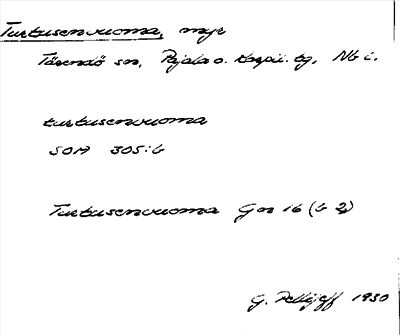 Turtusenvuoma, myr
Tärendö sn, Pajala o. Korpil. tg, Nb l.
turtusenvuoma
SOA 305:6
Turtusenvuoma Gen 16 (b 2)
G. Pellijeff 1930